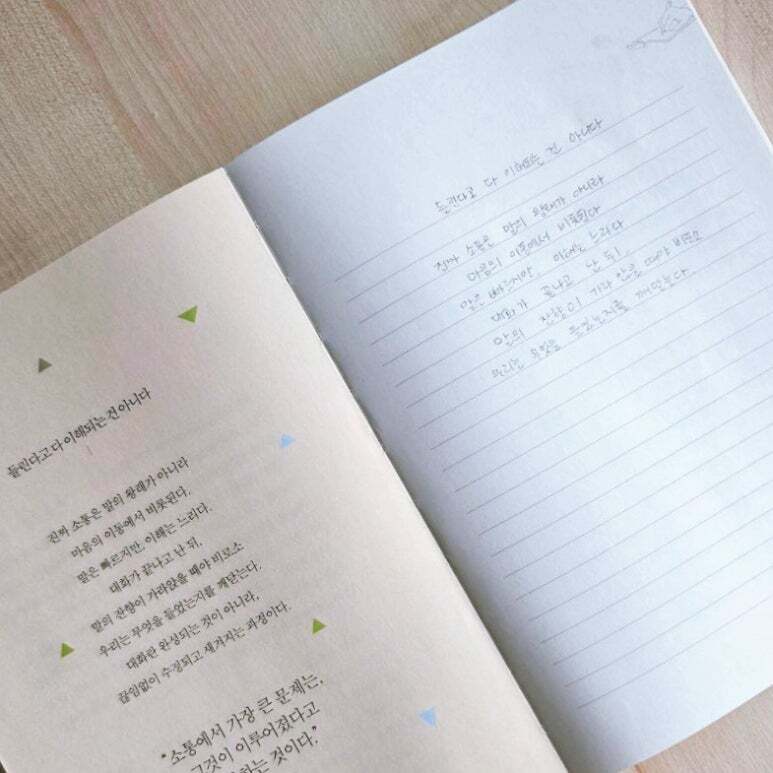 들린다고 다 이해되는 건 아니다
진짜 소통은 말의 왕래가 아니라
마음의 이동에서 비롯된다.
말은 빠르지만, 이해는 느리다.
대화가 끝나고 난 뒤,
말의 잔향이 가라앉을 때야 비로소
우리는 무엇을 들었는지를 깨닫는다.
대화란 완성되는 것이 아니라,
끊임없이 수정되고 새겨지는 과정이다.
"소통에서 가장 큰 문제는,
그것이 이루어졌다고
하는 것이다."
들린다고 다 이해되는 건 아니다
진짜 소통은 말의 왕래가 아니라
마음의 이동에서 비롯된다
말은 빠르지만, 이해는 느리다
대화가 끝나고 난 뒤,
말의 잔향이 가라앉을 때야 비로소
우리는 무엇을 들었는지를 깨닫는다